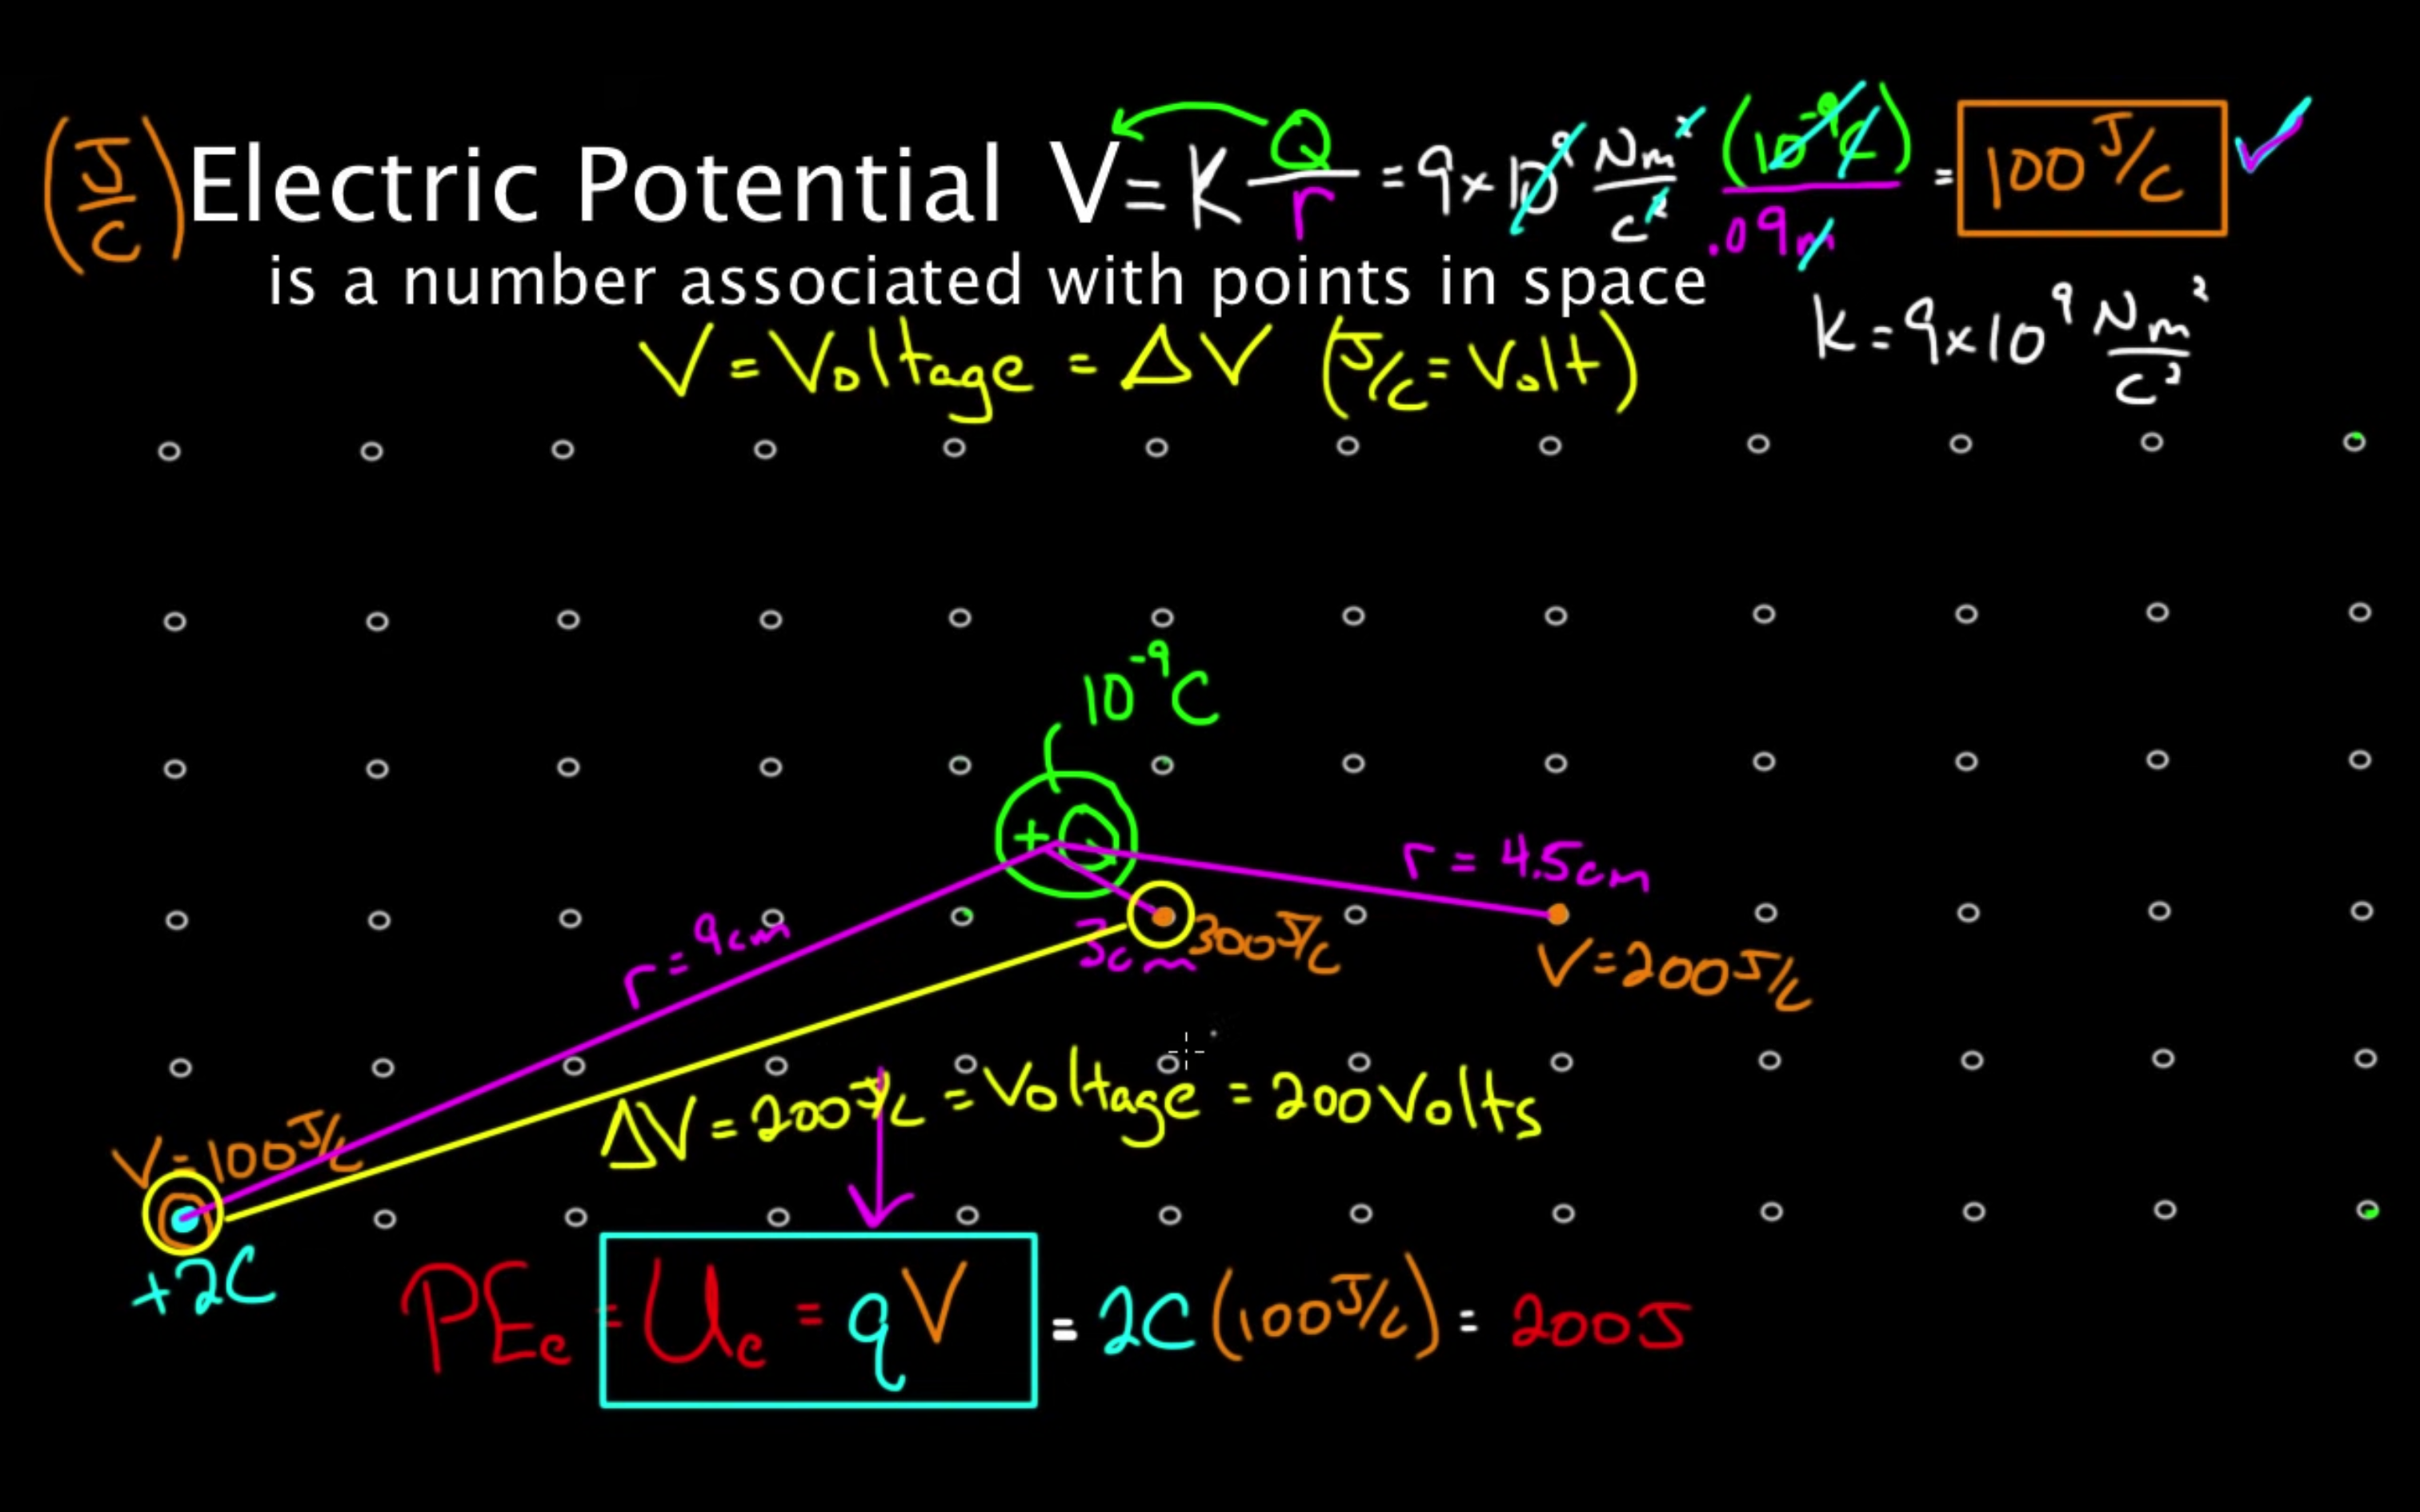 (J/C) Electric Potential V = K Q/r = 9x10⁹ Nm²/C² (10⁻⁹C)/.09m = 100 J/C
is a number associated with points in space
K = 9x10⁹ Nm²/C²
V = Voltage = ΔV (J/C = Volt)
10⁻⁹C
+Q
r = 4.5cm
r = 9cm
3cm 300 J/C
V = 200 J/C
ΔV = 200 J/C = Voltage = 200 Volts
V = 100 J/C
+2C
PEe = Ue = qV = 2C (100 J/C) = 200J